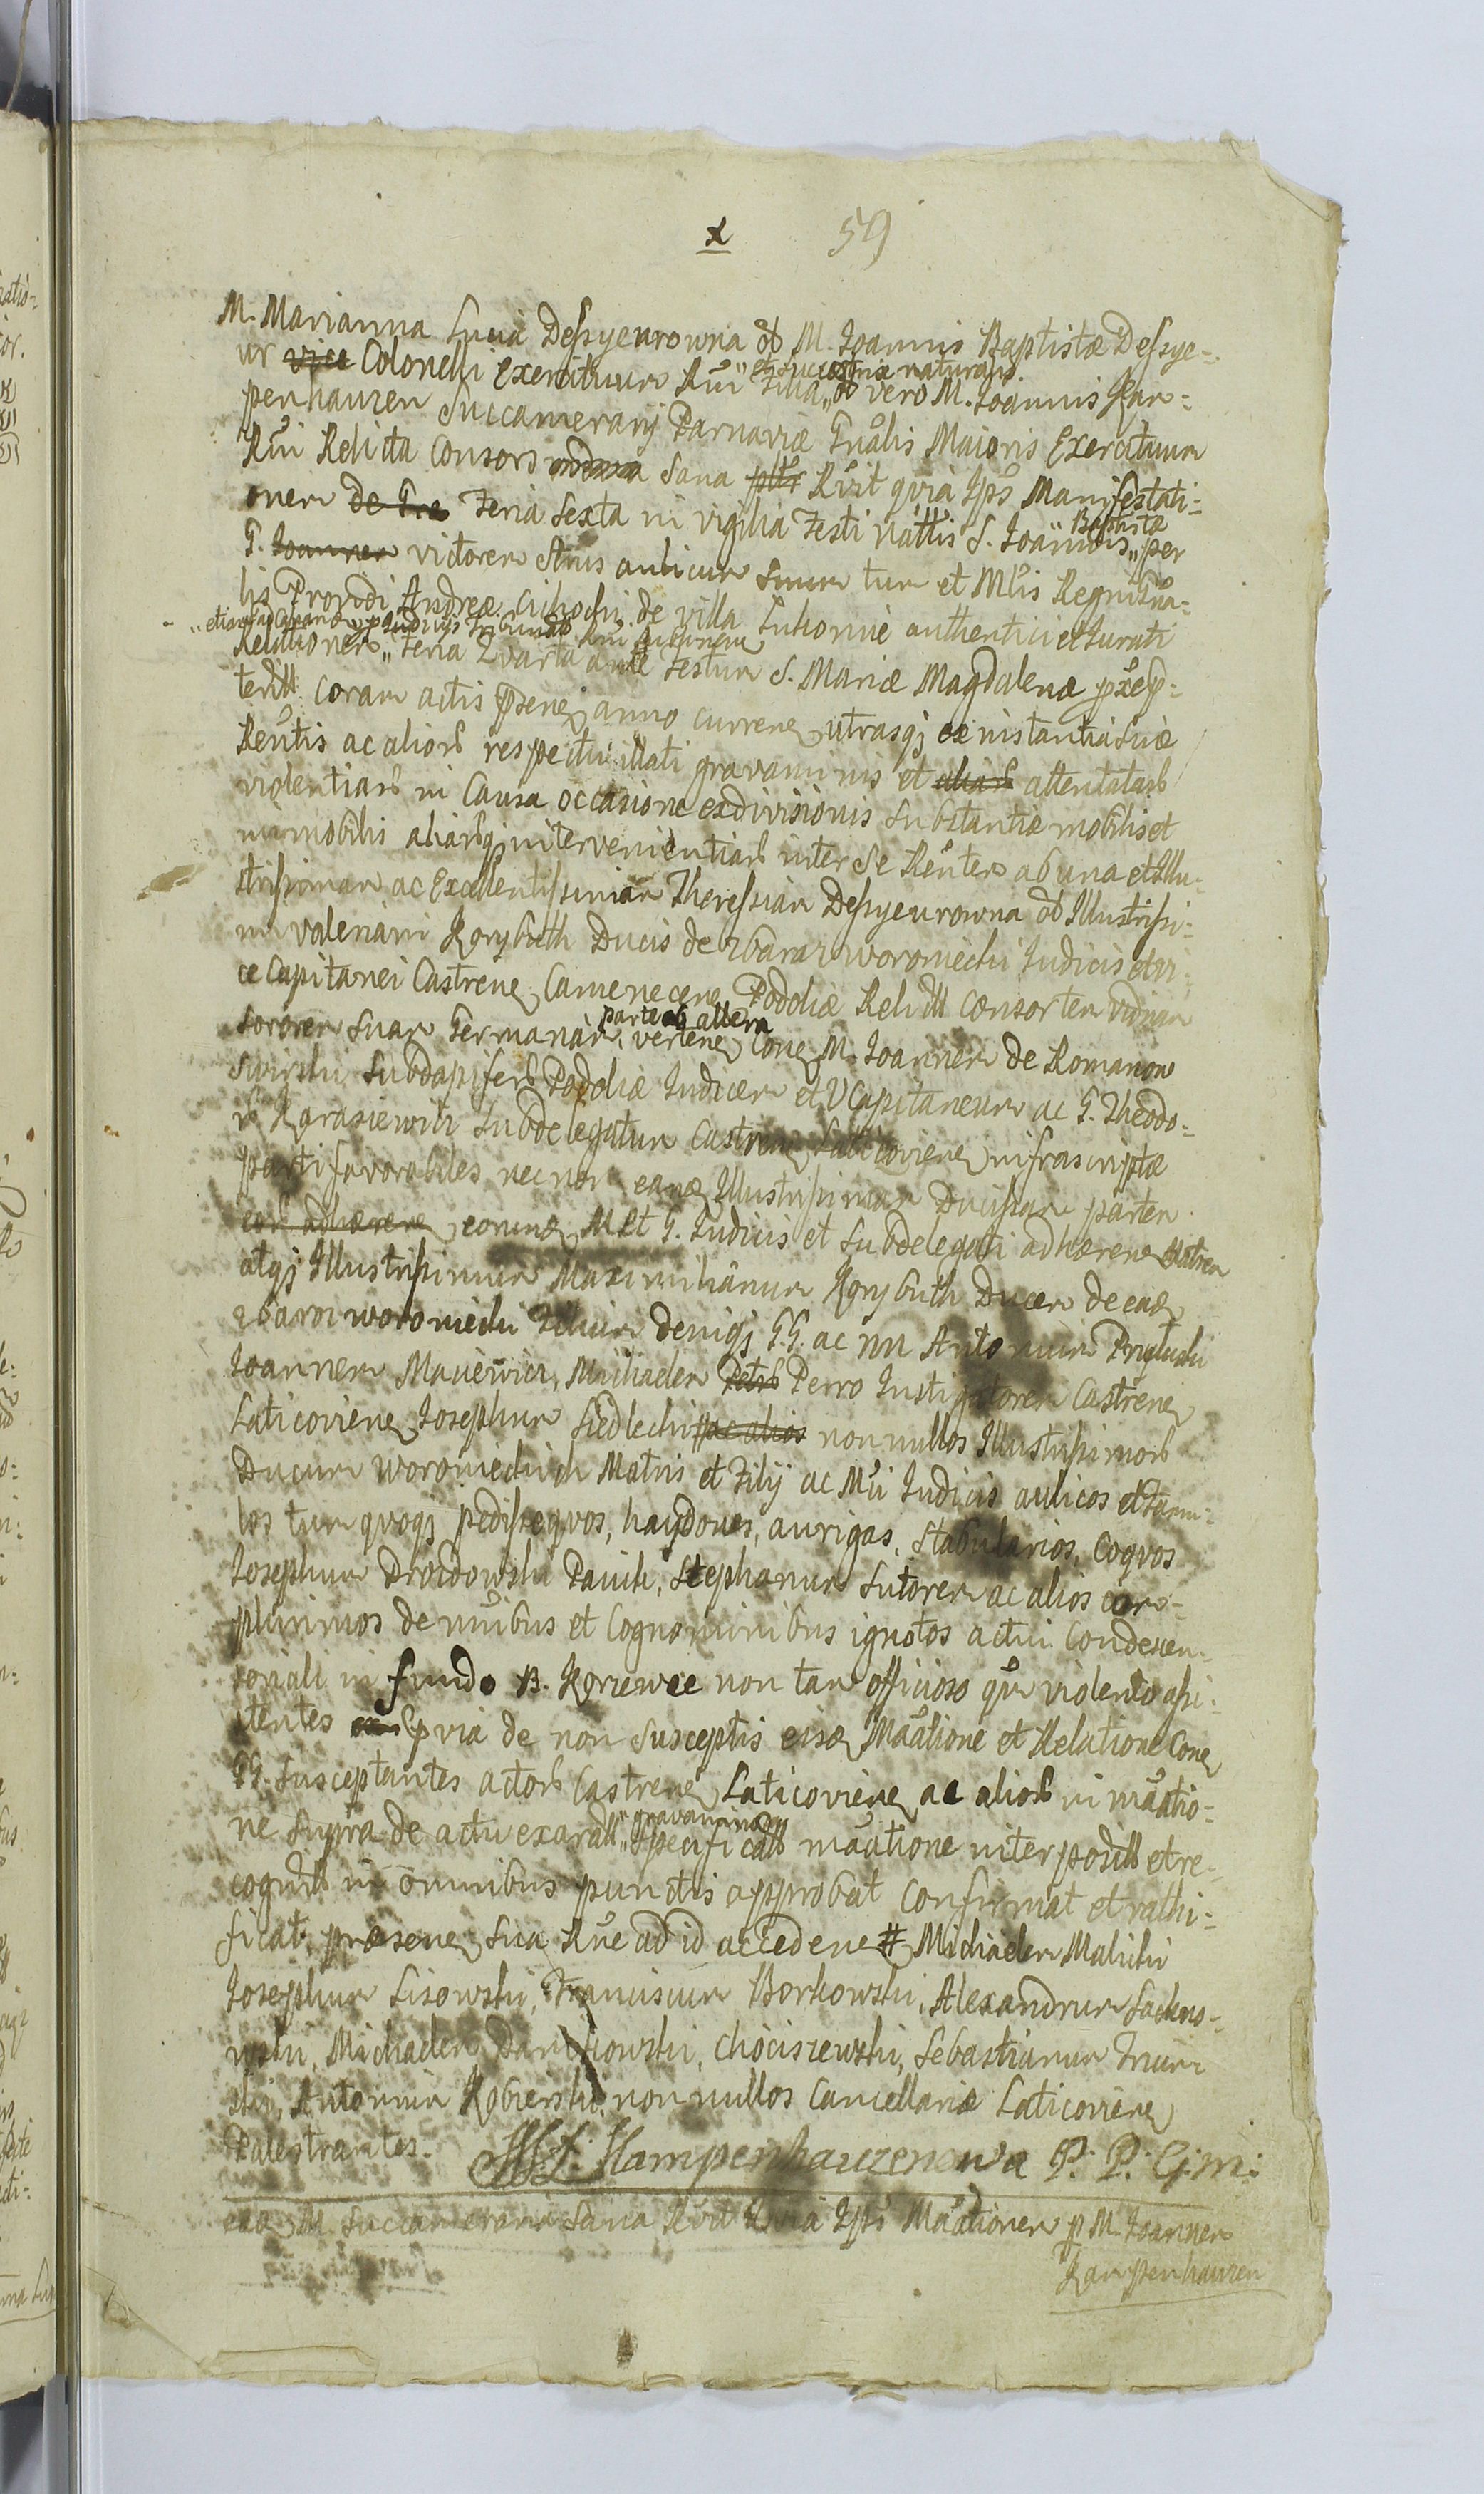 x 59
M. Marianna Lucia Dessyeurowna od M. Ioannis Baptistæ Dessye-
ur vice Colonelli Exercituum Rni Filia „et successtrix naturalis„ od vero M. Ioannis Kam-
penhauzen Succamerarij Parnaviæ Gnalis Maioris Exercituum
Rni Relicta Consors sana Rvit qvia Ips Manifestati-
onem de Gra Feria Sexta in vigilia Festi Nattis S. Ioannis „Baptistæ„ per
G. Ioannem victorem aulicum Suum tum et Mlis Regni Gna-
lis Providi Andreæ Cichocki de villa authentici et Iurati
Relationem „ Feria Qvarta ante Festum S. Mariæ Magdalenæ
coram actis psene anno currene utrasqz ex instantia suæ
Rentis ac alior respectu illati gravaminis et aliar attentatar
violentiar in Causa occasione exdivisionis Substantiæ mobilis et
immobilis aliarqz intervenientiar inter Se Rentem ab una et Illu-
strissimam ac Excellentissimam Theressiam Dessyeurowna od Illustrissi-
mi Valeriani Korybuth Ducis de Zbaraz Woroniecki Iudicis et vi-
ce Capitanei Castrene Camenecene Podoliæ Relictt Consortem vdnam
Sororem Suam Germanam parte ab altera vertene Cone M. Ioannem de Romanow
Swirski Subdapifer Podoliæ Iudicem et VCapitaneum ac G. Theodo-
r Karasiewicz Subdelegatum Castrene Laticoviene infrascriptæ
parti favorabiles nec non eand Illustrissimam Ducissam partem
eor adhærene eorund M et G. Iudicis et Subdelegati adhærene Matrem
atqz Illustrissimum Maximilianum Korybuth Ducem de ead
Zbaraz Woroniecki Filium deniqz G.G. ac nn Antonium Prytuski
Ioannem Maciewicz, Michaelem Petr Perro Instigatorem Castrene
Laticoviene Iosephum Siedlecki ac alios non nullos Illustrissimor
Ducum Woronieckich Matris et Filij ac Mci Iudicis aulicos et Famu-
los tum qvoqz pedisseqvos, haydones, aurigas, Stabularios, Coqvos
Iosephum Drozdowski Stephanum Sutorem ac alios com-
plurimos de nnibus et Cognominibus ignotos actui Condescen-
soriali in fundo B. Korzewce non tam officioso qm violento assi-
stentes Qvia de non Susceptis eisd Maatione et Relatione Cone
GG. Susceptantes actor Castrene Laticoviene ac alior in maatio-
ne supra de actu exaratt „gravaminar„ Specificatt maatione interpositt et re-
cognitt in omnibus punctis approbat Confirmat et rathi-
ficat, præsene Sua Rne ad id accedene # Michaelem Malicki
Iosephum Lisowski, Franciscum Borkowski, Alexandrum Sacho-
wski, Michaelem Chociszewski, Sebastianum
ski, Antonium non nullos Cancellariæ Laticoviene
Palestrantes. M. L. Kampenhauzenowa P. P. G: m:
ead M. Succameraria Sana Rvit Qvia Ips Maationem p M. Ioannem
Kampenhauzen